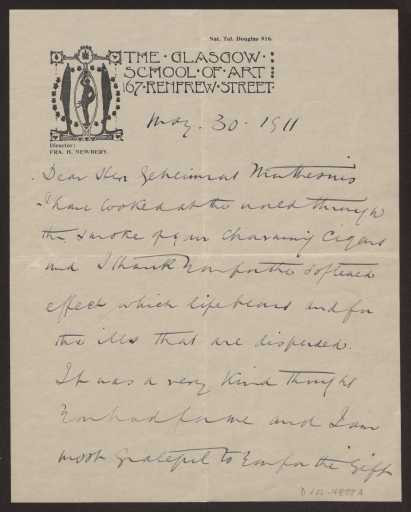 Nat. Tel. Douglas 816.
THE · GLASGOW ·
SCHOOL · OF · ART
167 · RENFREW · STREET ·
Director:
FRA. H. NEWBERY.
May. 30 · 1911
Dear Herr Geheimrat Muthesius
I have looked at the world through
the smoke of your charming Cigars
and I thank You for the softened
effect which life bears and for
the ills that are dispersed.
It was a very kind thought
You had for me and I am
most grateful to You for the Gift